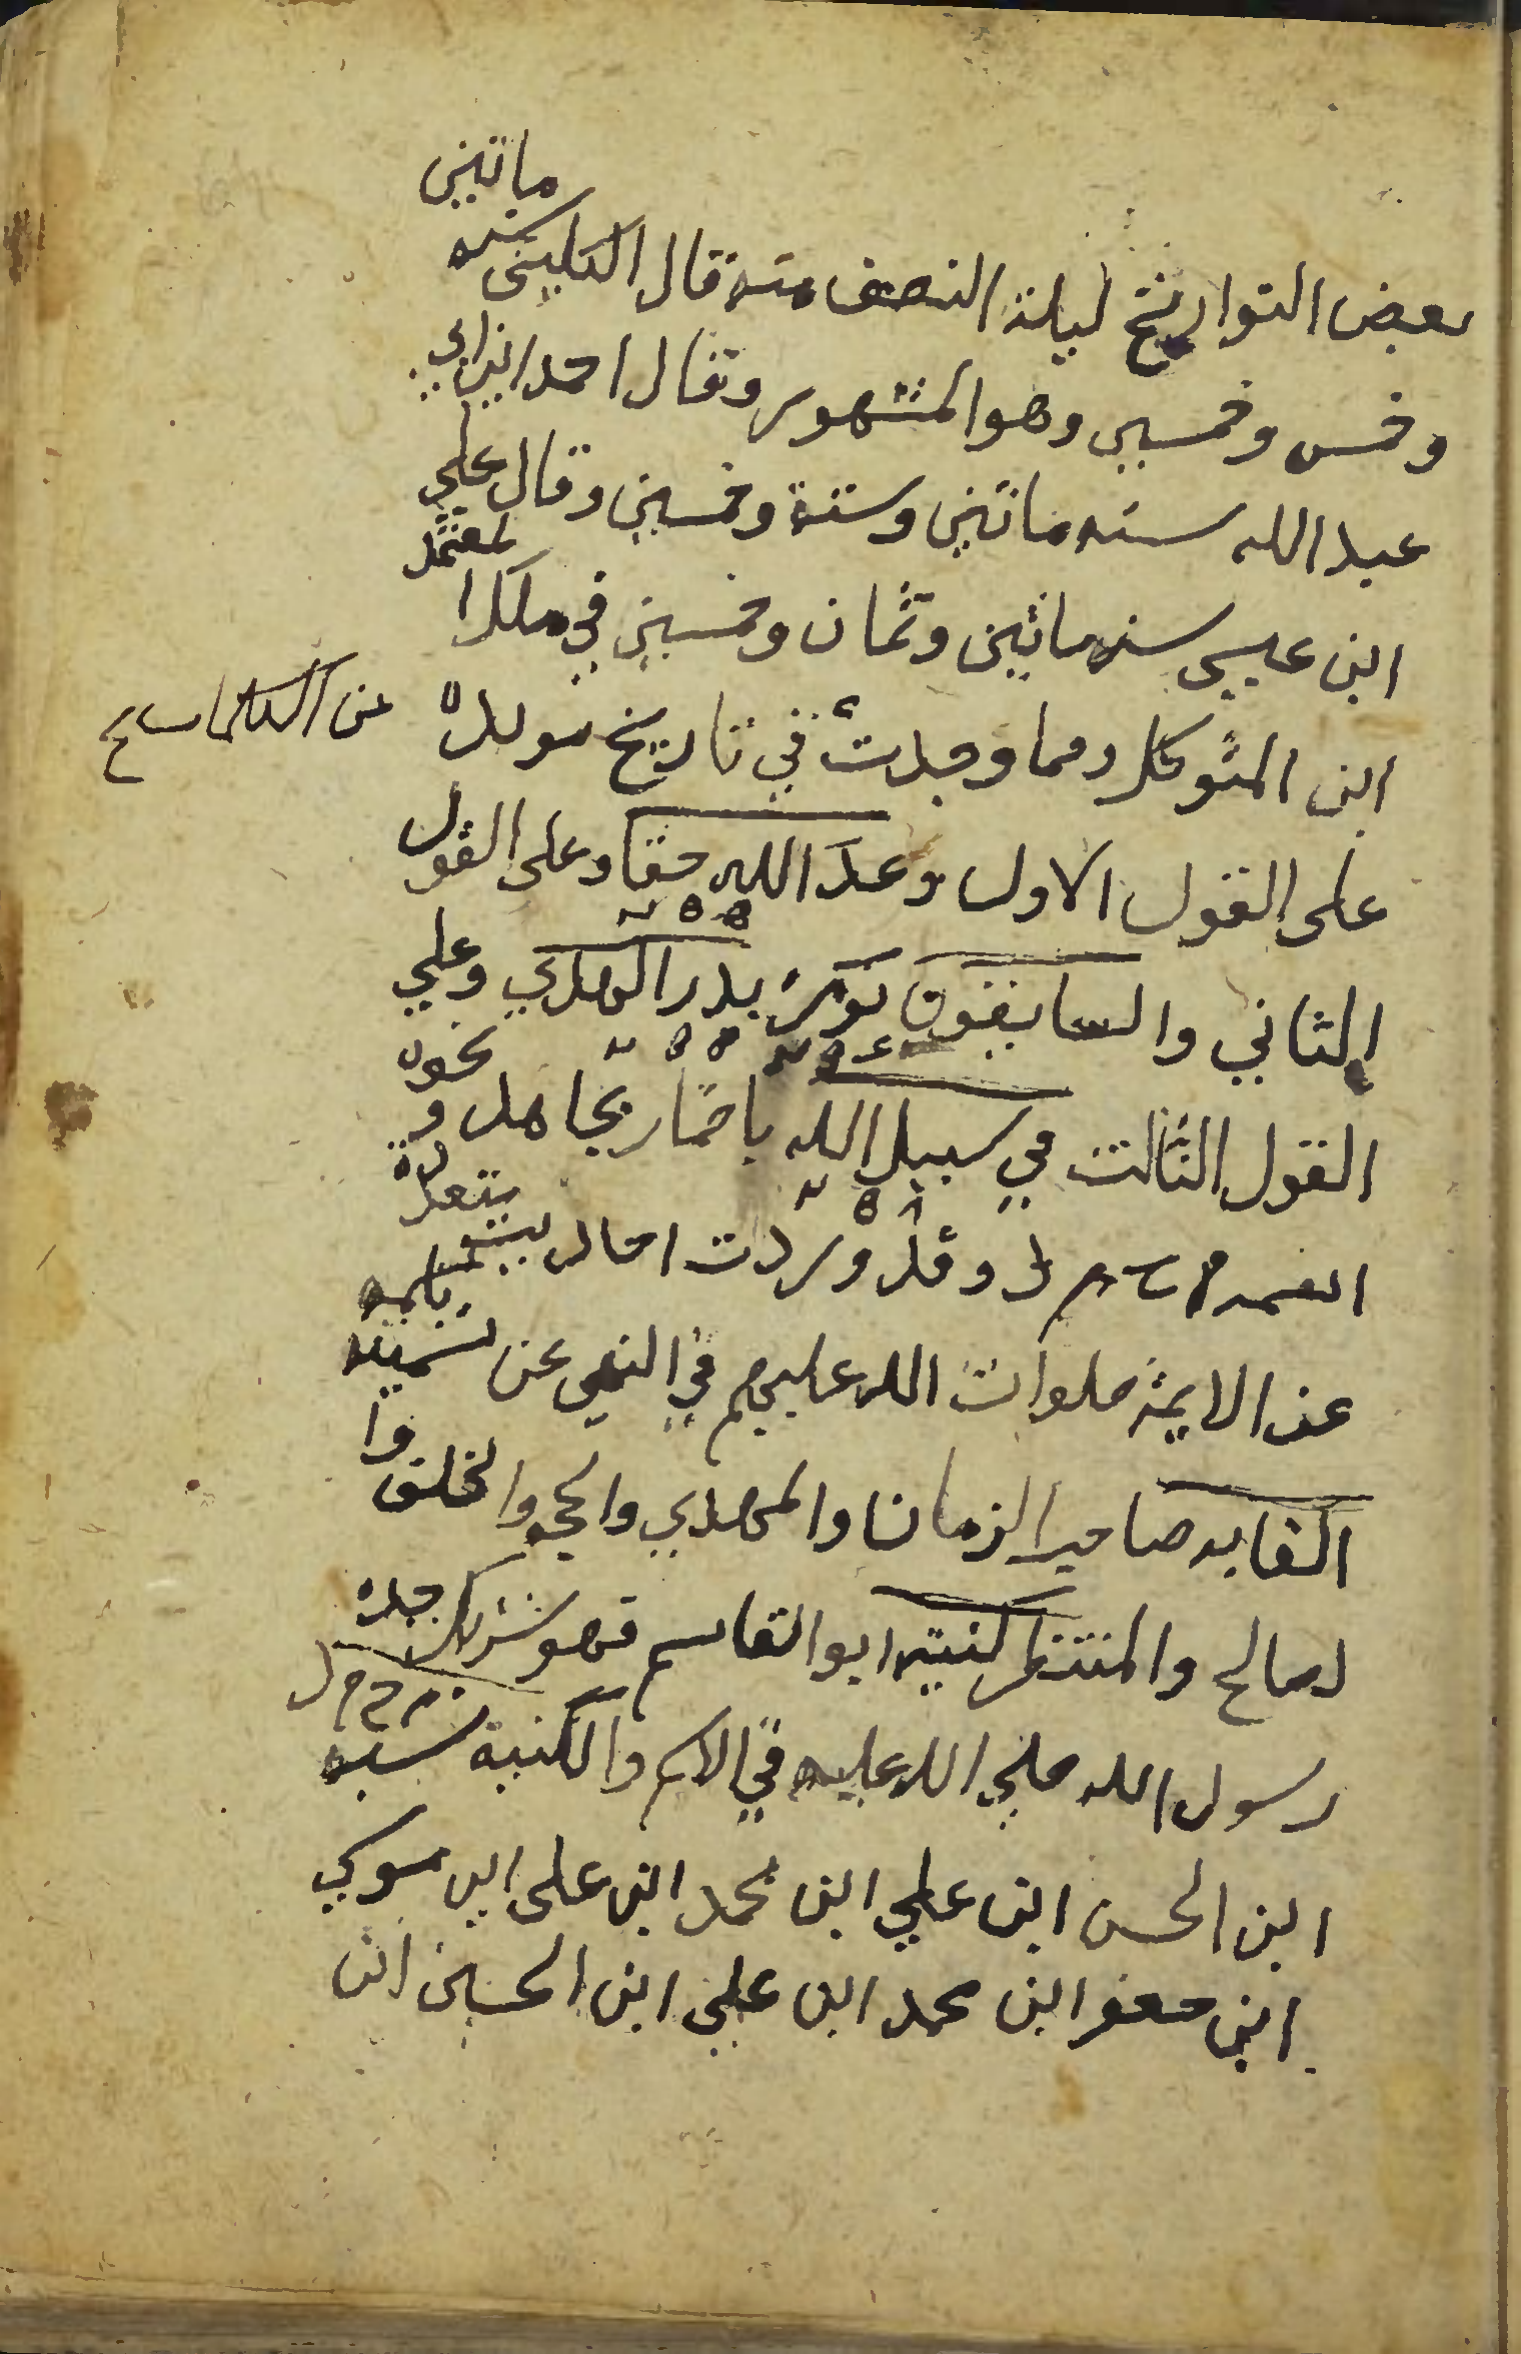 بعض التواريخ ليلة النصف منه قال الكليني سنه ماتين
وخمس وخمسين وهو المشهور وقال احمد ابن ابي
عبد الله سنه ماتين وستة وخمسين وقال علي
ابن عيسى سنه ماتين وثمان وخمسين في ملك المعتمد
ابن المتوكل ومما وجدت في تاريخ تولده عن الكلمات
على القول الاول وعد الله حقا وعلى القول
٢٥٥
الثاني والسابقون نور بدر الهدي وعلي
٢٥٥
القول الثالث في سبيل الله باضمار يجاهد ونحوه
٢٥٨
اسمه م ح م د وقد وردت اخبار متعددة
عن الايمة صلوات الله عليهم في النهي عن تسميته باسمه
القابه صاحب الزمان والمهدي والحجه والخلف وا
لصالح والمنتظر كنيته ابو القاسم فهو شريك جده
رسول الله صلي الله عليه في الاسم والكنية نسبه م ح م د
ابن الحسن ابن علي ابن محمد ابن على ابن موسي
ابن جعفر ابن محمد ابن علي ابن الحسين ابن